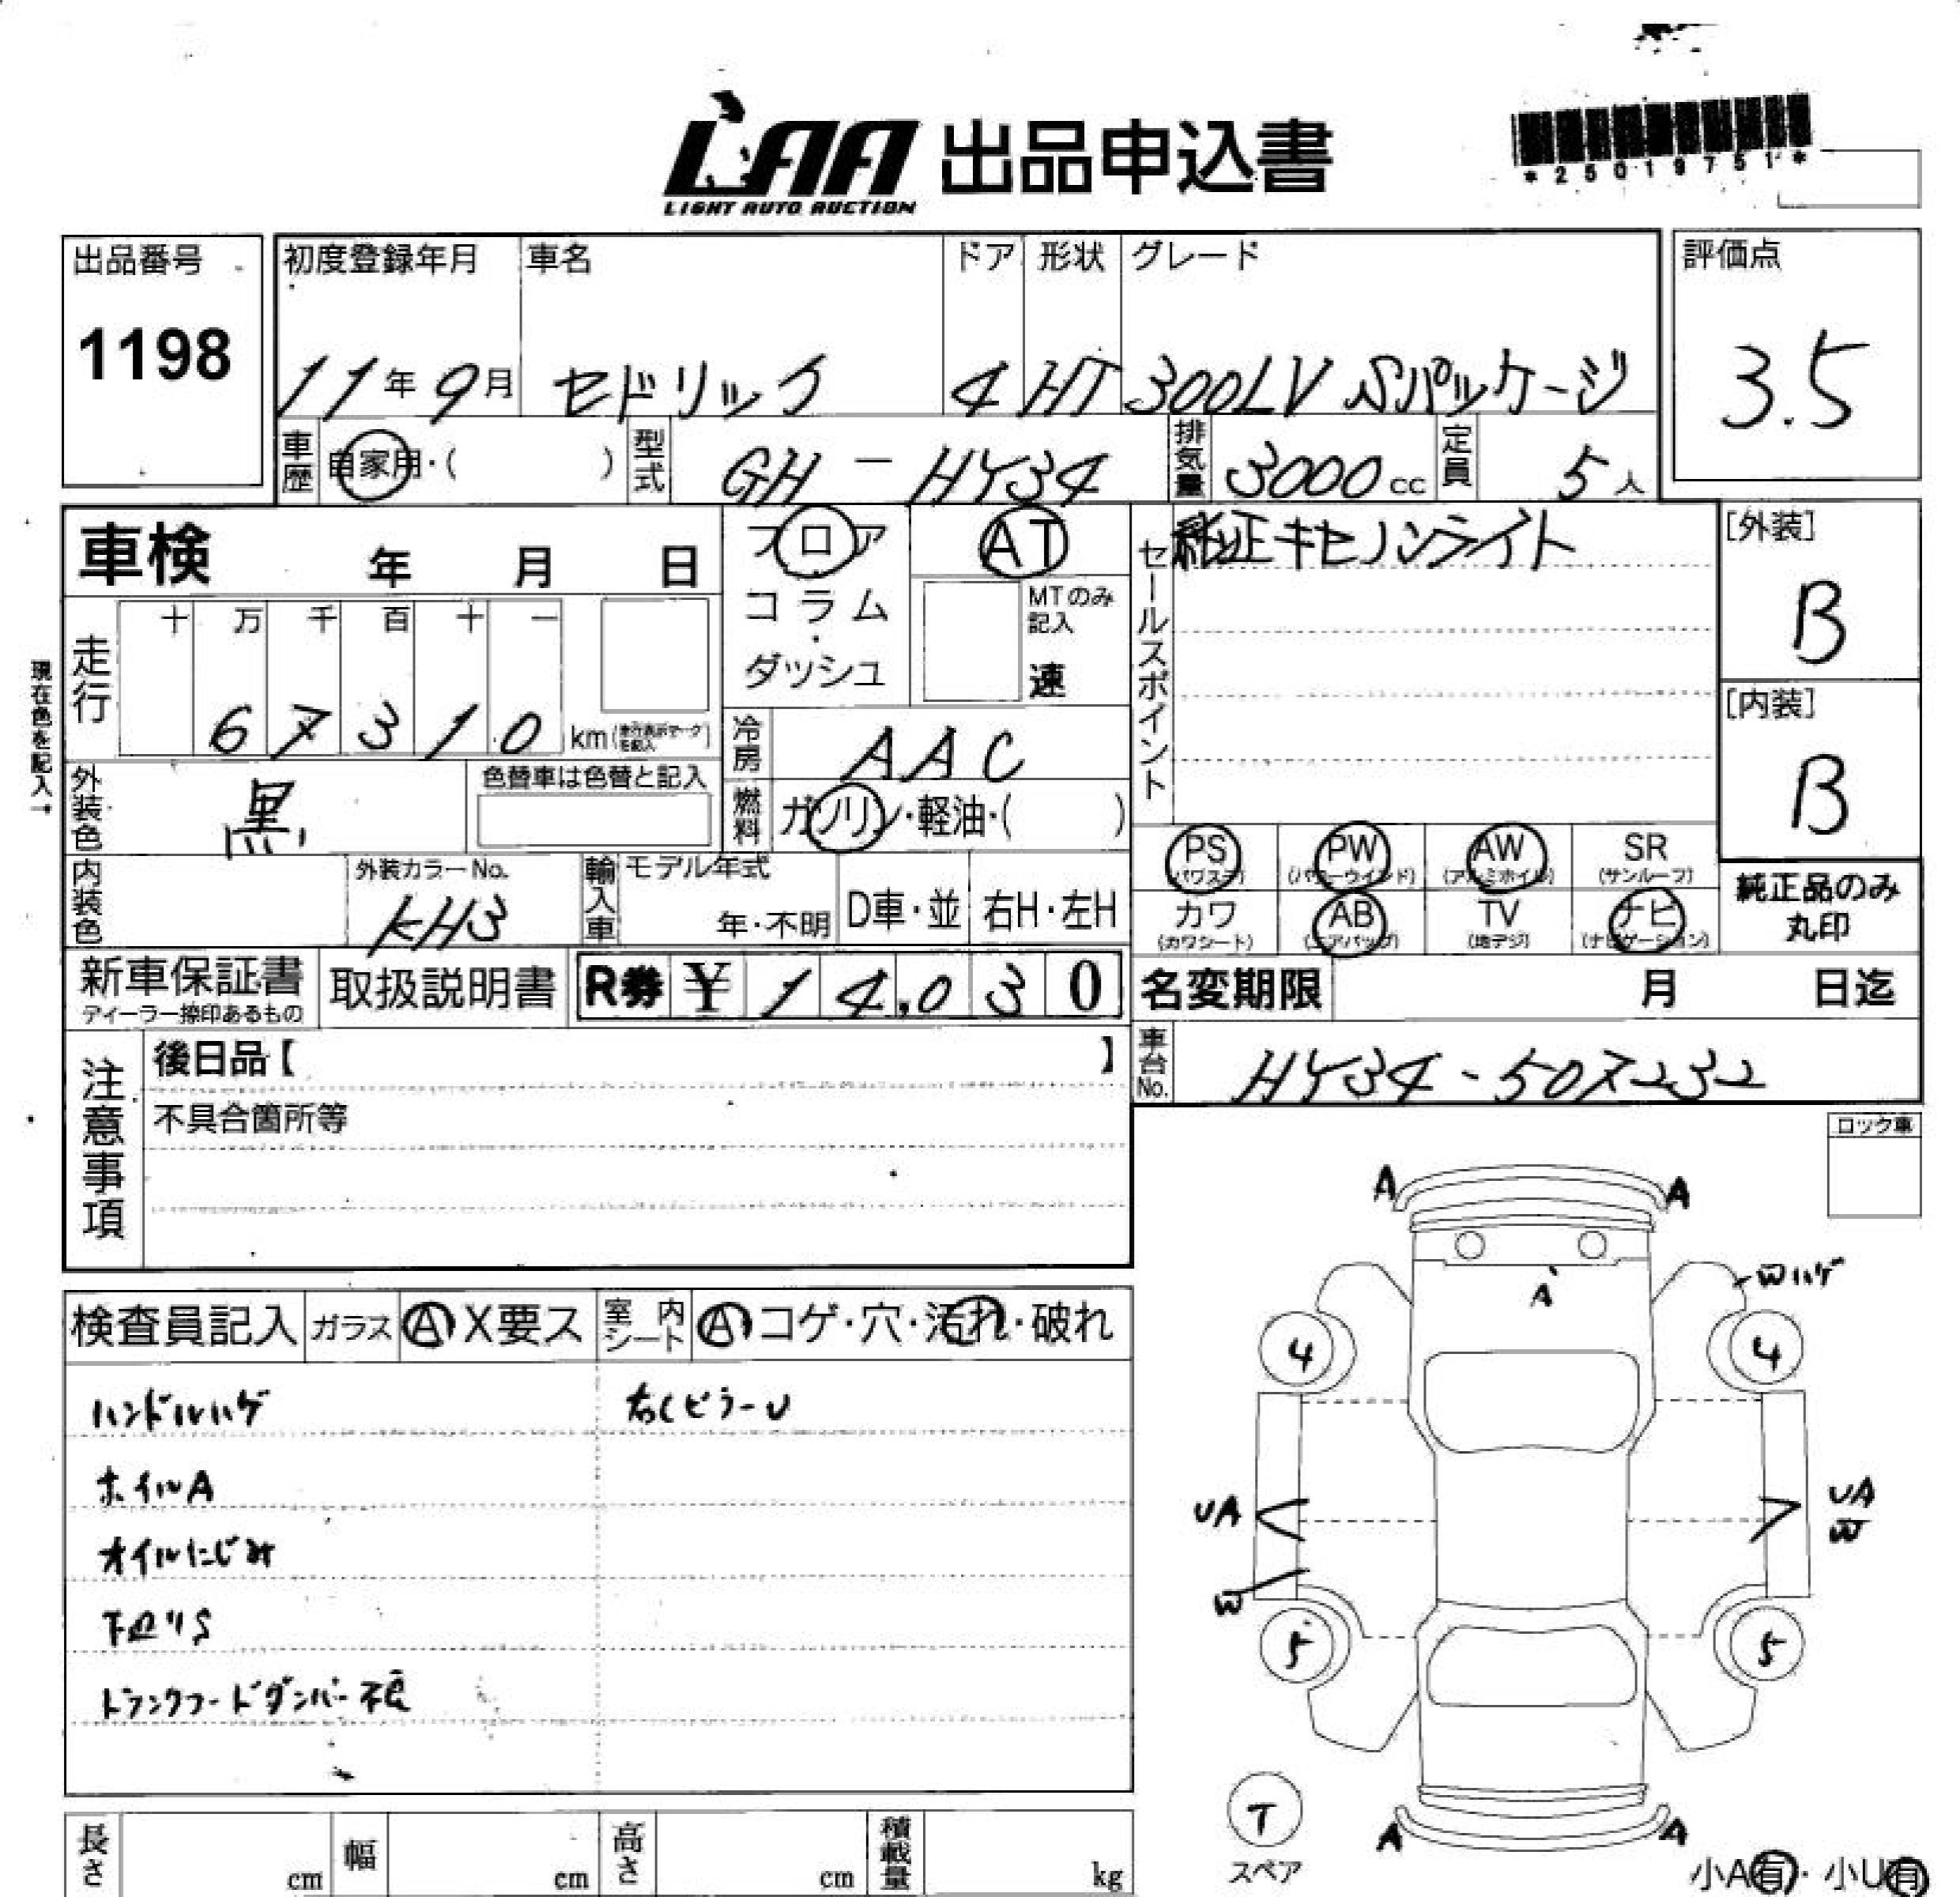 LAA 出品申込書
LIGHT AUTO AUCTION
*25019751*
出品番号
1198
初度登録年月 車名 ドア 形状 グレード
11年9月 セドリック 4 HT 300LV Sパッケージ
評価点
3.5
車歴 自家用・( ) 型式 GH-HY34 排気量 3000cc 定員 5人
車検 年 月 日
フロア
コラム
・
ダッシュ
AT
MTのみ
記入
速
セールスポイント
純正キセノンライト
[外装]
B
[内装]
B
現在色を記入→
走行
十 万 千 百 十 一
6 7 3 1 0 km
冷房 AAC
外装色 黒
色替車は色替と記入
燃料 ガソリン・軽油・( )
内装色
外装カラーNo.
KH3
輸入車 モデル年式
年・不明 D車・並 右H・左H
PS PW AW SR
(パワステ) (パワーウインド) (アルミホイル) (サンルーフ)
カワ AB TV ナビ
(カワシート) (エアバッグ) (地デジ) (ナビゲーション)
純正品のみ
丸印
新車保証書
ディーラー捺印あるもの
取扱説明書
R券 ¥ 14,030
名変期限 月 日迄
車台No. HY34-507232
注意事項
後日品【 】
不具合箇所等
ロック車
検査員記入 ガラス A X要ス 室内シート A コゲ・穴・汚れ・破れ
ハンドルハゲ 右CピラーU
ホイルA
オイルにじみ
下廻りS
トランクフードダンパー不良
A A
A
Wハゲ
4 4
UA UA
W
W
5 5
T
スペア
A A
小A有・小U有
長さ cm 幅 cm 高さ cm 積載量 kg